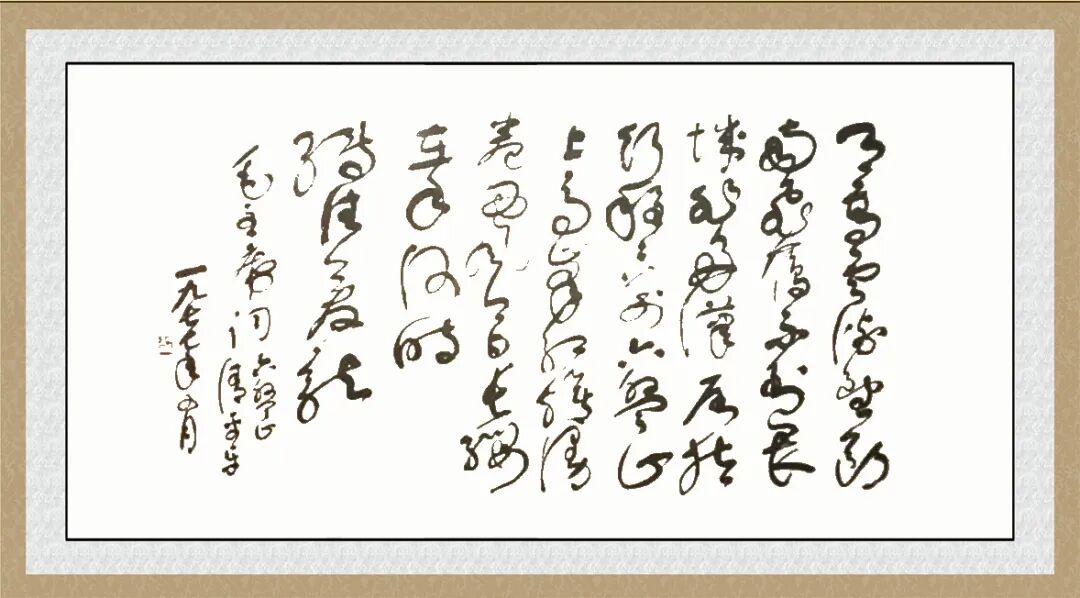 天高云淡望断
南飞雁不到长
城非好汉屈指
行程二万六盘山
上高峰红旗漫
卷西风今日长缨
在手何时
缚住苍龙
毛主席词六盘山
清平乐
一九七七年月